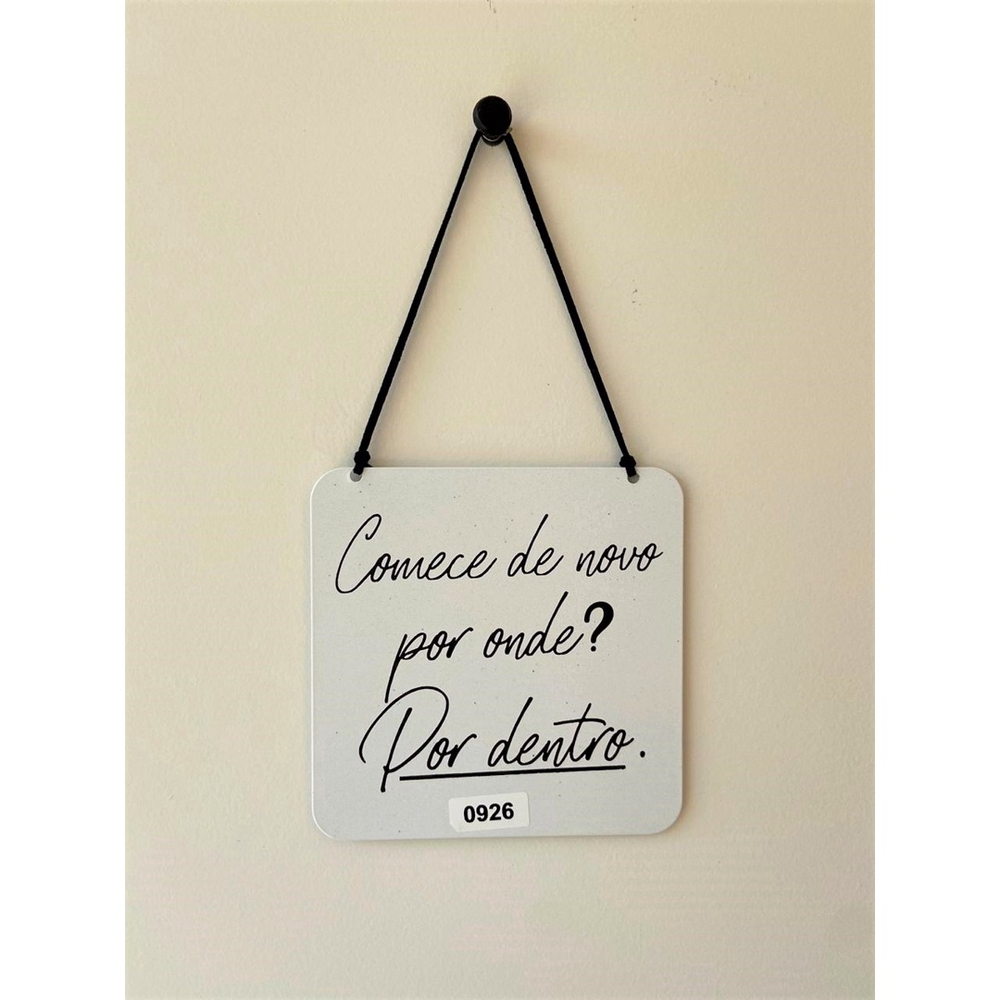 Comece de novo
por onde?
Por dentro.
0926